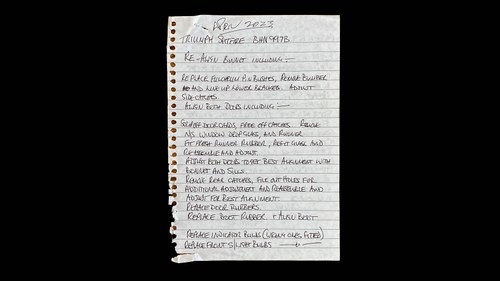 APRIL 2023
TRIUMPH SPITFIRE BHN 997B
RE-ALIGN BONNET INCLUDING :-
REPLACE FULCRUM PIN BUSHES, REMOVE BUMPER
AND MAKE UP LOWER BRACKETS. ADJUST
SIDE CATCHES.
ALIGN BOTH DOORS INCLUDING :-
DOORCARDS, FREE OFF CATCHES. REMOVE
N/S WINDOW DROP GLASS, AND RUNNER
FIT FRESH RUNNER RUBBER, REFIT GLASS AND
RE-ASSEMBLE AND ADJUST.
ADJUST BOTH DOORS TO GET BEST ALIGNMENT WITH
BONNET AND SILLS.
REMOVE REAR CATCHES, FILE OUT HOLES FOR
ADDITIONAL ADJUSTMENT AND REASSEMBLE AND
ADJUST FOR BEST ALIGNMENT.
REPLACE DOOR RUBBERS.
REPLACE BOOT RUBBER + ALIGN BOOT
REPLACE INDICATOR BULBS (WRONG ONES FITTED)
REPLACE FRONT S/LIGHT BULBS